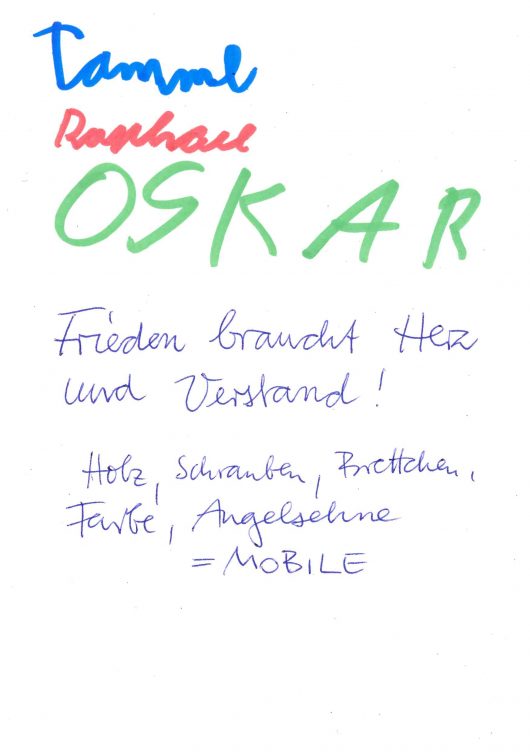 Tamml
Raphael
OSKAR
Frieden braucht Herz
und Verstand!
Holz, Schrauben, Brettchen,
Farbe, Angelsehne
= MOBILE